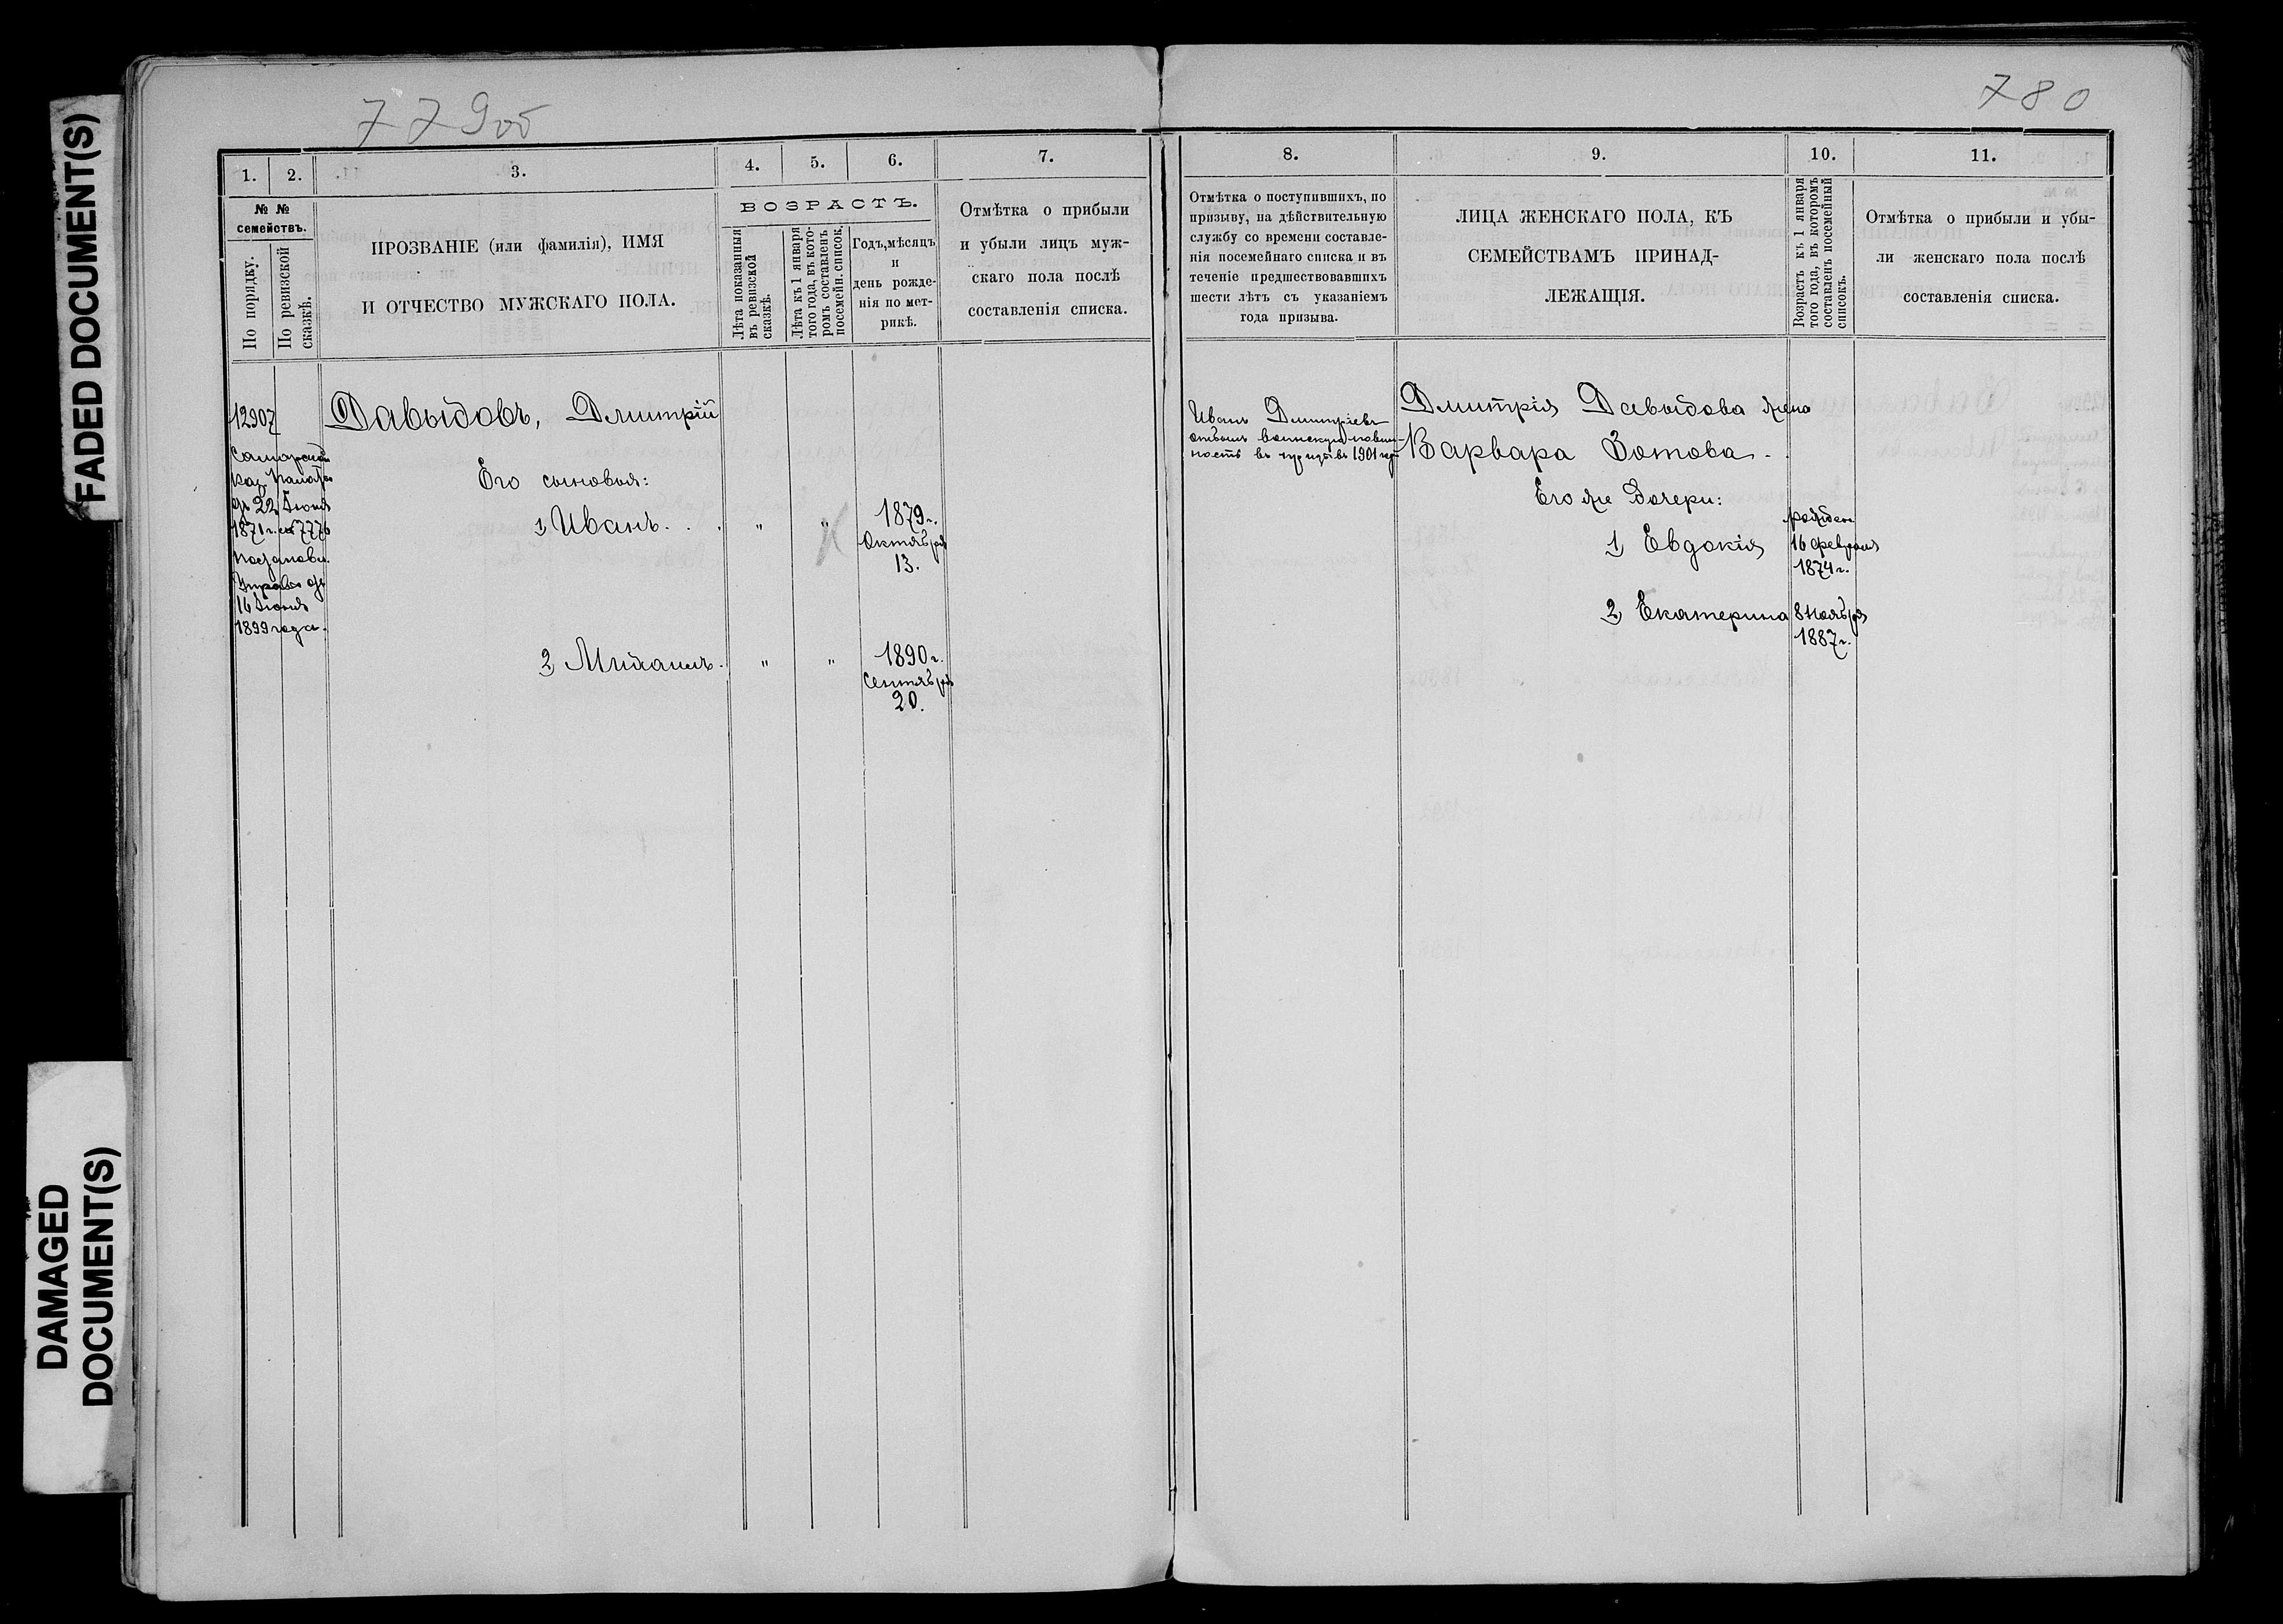 FADED DOCUMENT(S)
DAMAGED
DOCUMENT(S)
779об
780
1.
2.
3.
4.
5.
6.
7.
№ №
семействъ.
По порядку.
По ревизской
сказкѣ.
ПРОЗВАНІЕ (или фамилія), ИМЯ
И ОТЧЕСТВО МУЖСКАГО ПОЛА.
ВОЗРАСТЪ.
Лѣта показанныя
въ ревизской
сказкѣ.
Лѣта къ 1 января
того года, въ кото-
ромъ составленъ
посемейн. список.
Годъ, мѣсяцъ
и
день рожде-
нія по мет-
рикѣ.
Отмѣтка о прибыли
и убыли лицъ муж-
скаго пола послѣ
составленія списка.
12907
Самарской
каз. палаты
отъ 22 Іюня
1871 г. за № 7776
постановл.
Управы отъ
16 Іюня
1899 года.
Давыдовъ, Дмитрій
Его сыновья:
1, Иванъ . . . " "
1879 г.
Октября
13.
2, Михаилъ . " "
1890 г.
Сентября
20.
8.
9.
10.
11.
Отмѣтка о поступившихъ, по
призыву, на дѣйствительную
службу со времени составле-
нія посемейнаго списка и въ
теченіе предшествовавшихъ
шести лѣтъ съ указаніемъ
года призыва.
ЛИЦА ЖЕНСКАГО ПОЛА, КЪ
СЕМЕЙСТВАМЪ ПРИНАД-
ЛЕЖАЩІЯ.
Возрастъ къ 1 января
того года, въ которомъ
составленъ посемейный
списокъ.
Отмѣтка о прибыли и убы-
ли женскаго пола послѣ
составленія списка.
Иванъ Дмитріевъ
отбылъ воинскую повин-
ность въ призывъ 1901 года
Дмитрія Давыдова жена
Варвара Зотова .
Его же дочери:
1, Евдокія
рожден.
16 февраля
1874 г.
2, Екатерина
8 Ноября
1887 г.